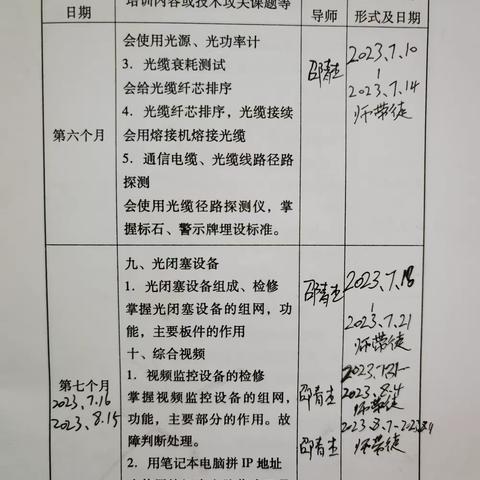 日期
培训内容或技术攻关课题等
导师
形式及日期
第六个月
会使用光源、光功率计
3．光缆衰耗测试
会给光缆纤芯排序
4．光缆纤芯排序，光缆接续
会用熔接机熔接光缆
5．通信电缆、光缆线路径路
探测
会使用光缆径路探测仪，掌
握标石、警示牌埋设标准。
邵青杰
2023、7、10
-
2023、7、14
师带徒
第七个月
2023、7.16
2023、8.15
九、光闭塞设备
1．光闭塞设备组成、检修
掌握光闭塞设备的组网，功
能，主要板件的作用
十、综合视频
1．视频监控设备的检修
掌握视频监控设备的组网，
功能，主要部分的作用。故
障判断处理。
2．用笔记本电脑拼 IP 地址
邵青杰
2023、7、18
-
2023、7、21
师带徒
邵青杰
2023、8、4
师带徒
邵青杰
师带徒